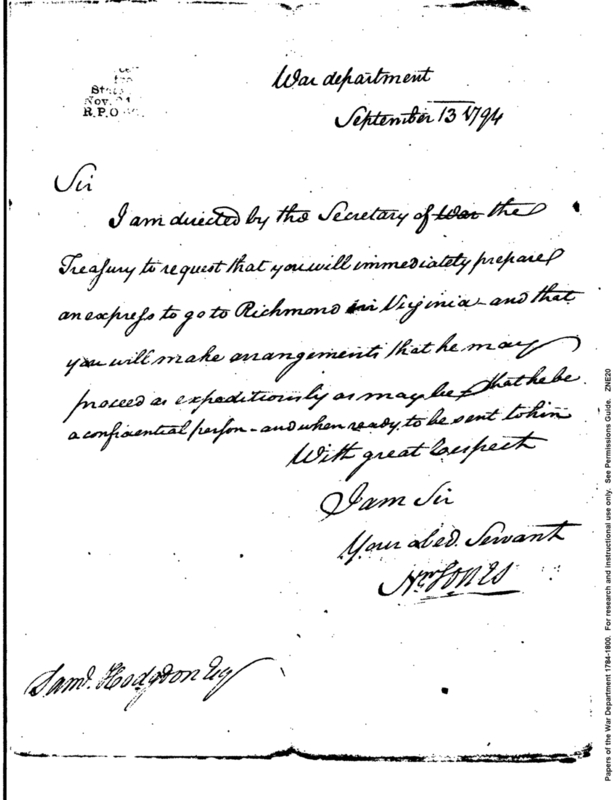 Stat
Nov. 21
R.P.O
War department
September 13 1794
Sir
I am directed by the Secretary of War the
Treasury to request that you will immediately prepare
an express to go to Richmond in Virginia - and that
you will make arrangements that he may
proceed as expeditiously as may be that he be
a confidential person - and when ready to be sent to him
With great Respect
I am Sir
Your obed. Servant
Wm Jones
Saml. Hodgdon Esq
Papers of the War Department 1784-1800. For research and instructional use only. See Permissions Guide. ZNE20